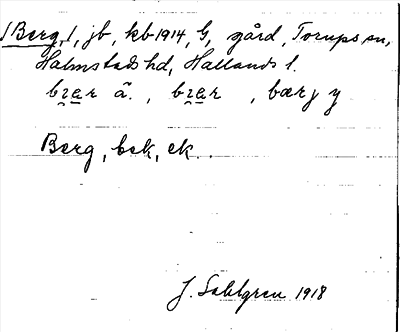 /Berg,/, jb, kb 1914, G, gård, Torups sn,
Halmstads hd, Hallands l.
bʒer ä., bʒer, bærj y
Berg, bek, ek.
J. Sahlgren 1918